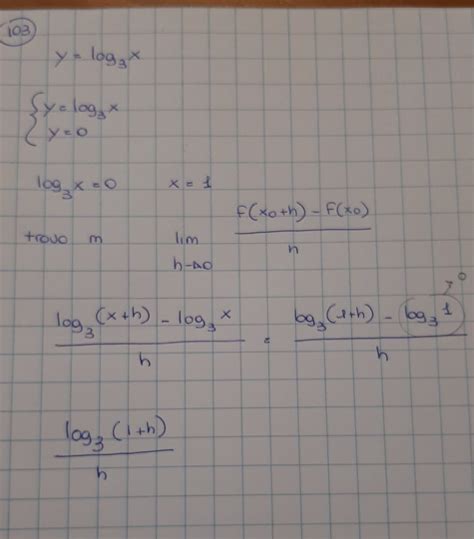 103
y = log₃x
{ y = log₃x
y = 0
log₃x = 0 x = 1
trovo m lim h→0 F(x₀+h) - F(x₀) / h
log₃(x+h) - log₃x / h = log₃(1+h) - log₃1 / h → 0
log₃(1+h) / h